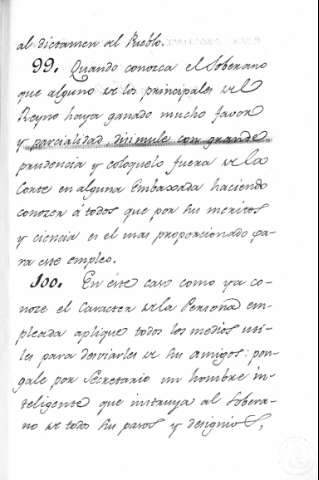 al dictamen del Pueblo.
99. Quando conozca el Soberano
que alguno de los principales del
Reyno haya ganado mucho favor
y parcialidad, disimule con grande
prudencia y coloquelo fuera de la
Corte en alguna Embaxada haciendo
conozcan á todos que por su meritos
y ciencia es el mas proporcionado pa-
ra este empleo.
100. En éste caso como ya co-
noze el Caracter de la Persona em-
pleada aplique todos los medios uti-
les para desviarles de sus amigos: pon-
gale por Secretario un hombre in-
teligente que instruya al Sobera-
no de todos sus pasos y designios,